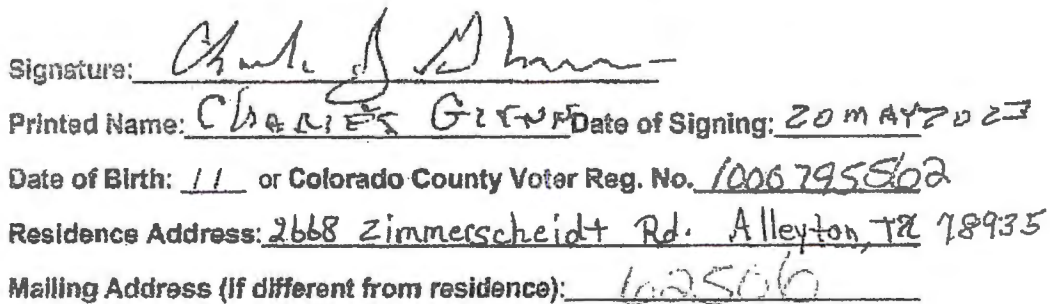 Signature:
Printed Name: CHARLES Date of Signing: 20 MAY 2023
Date of Birth: 11 or Colorado County Voter Reg. No.
Residence Address: 2668 Zimmerscheidt Rd. Alleyton, TX 78935
Mailing Address (if different from residence): 102506